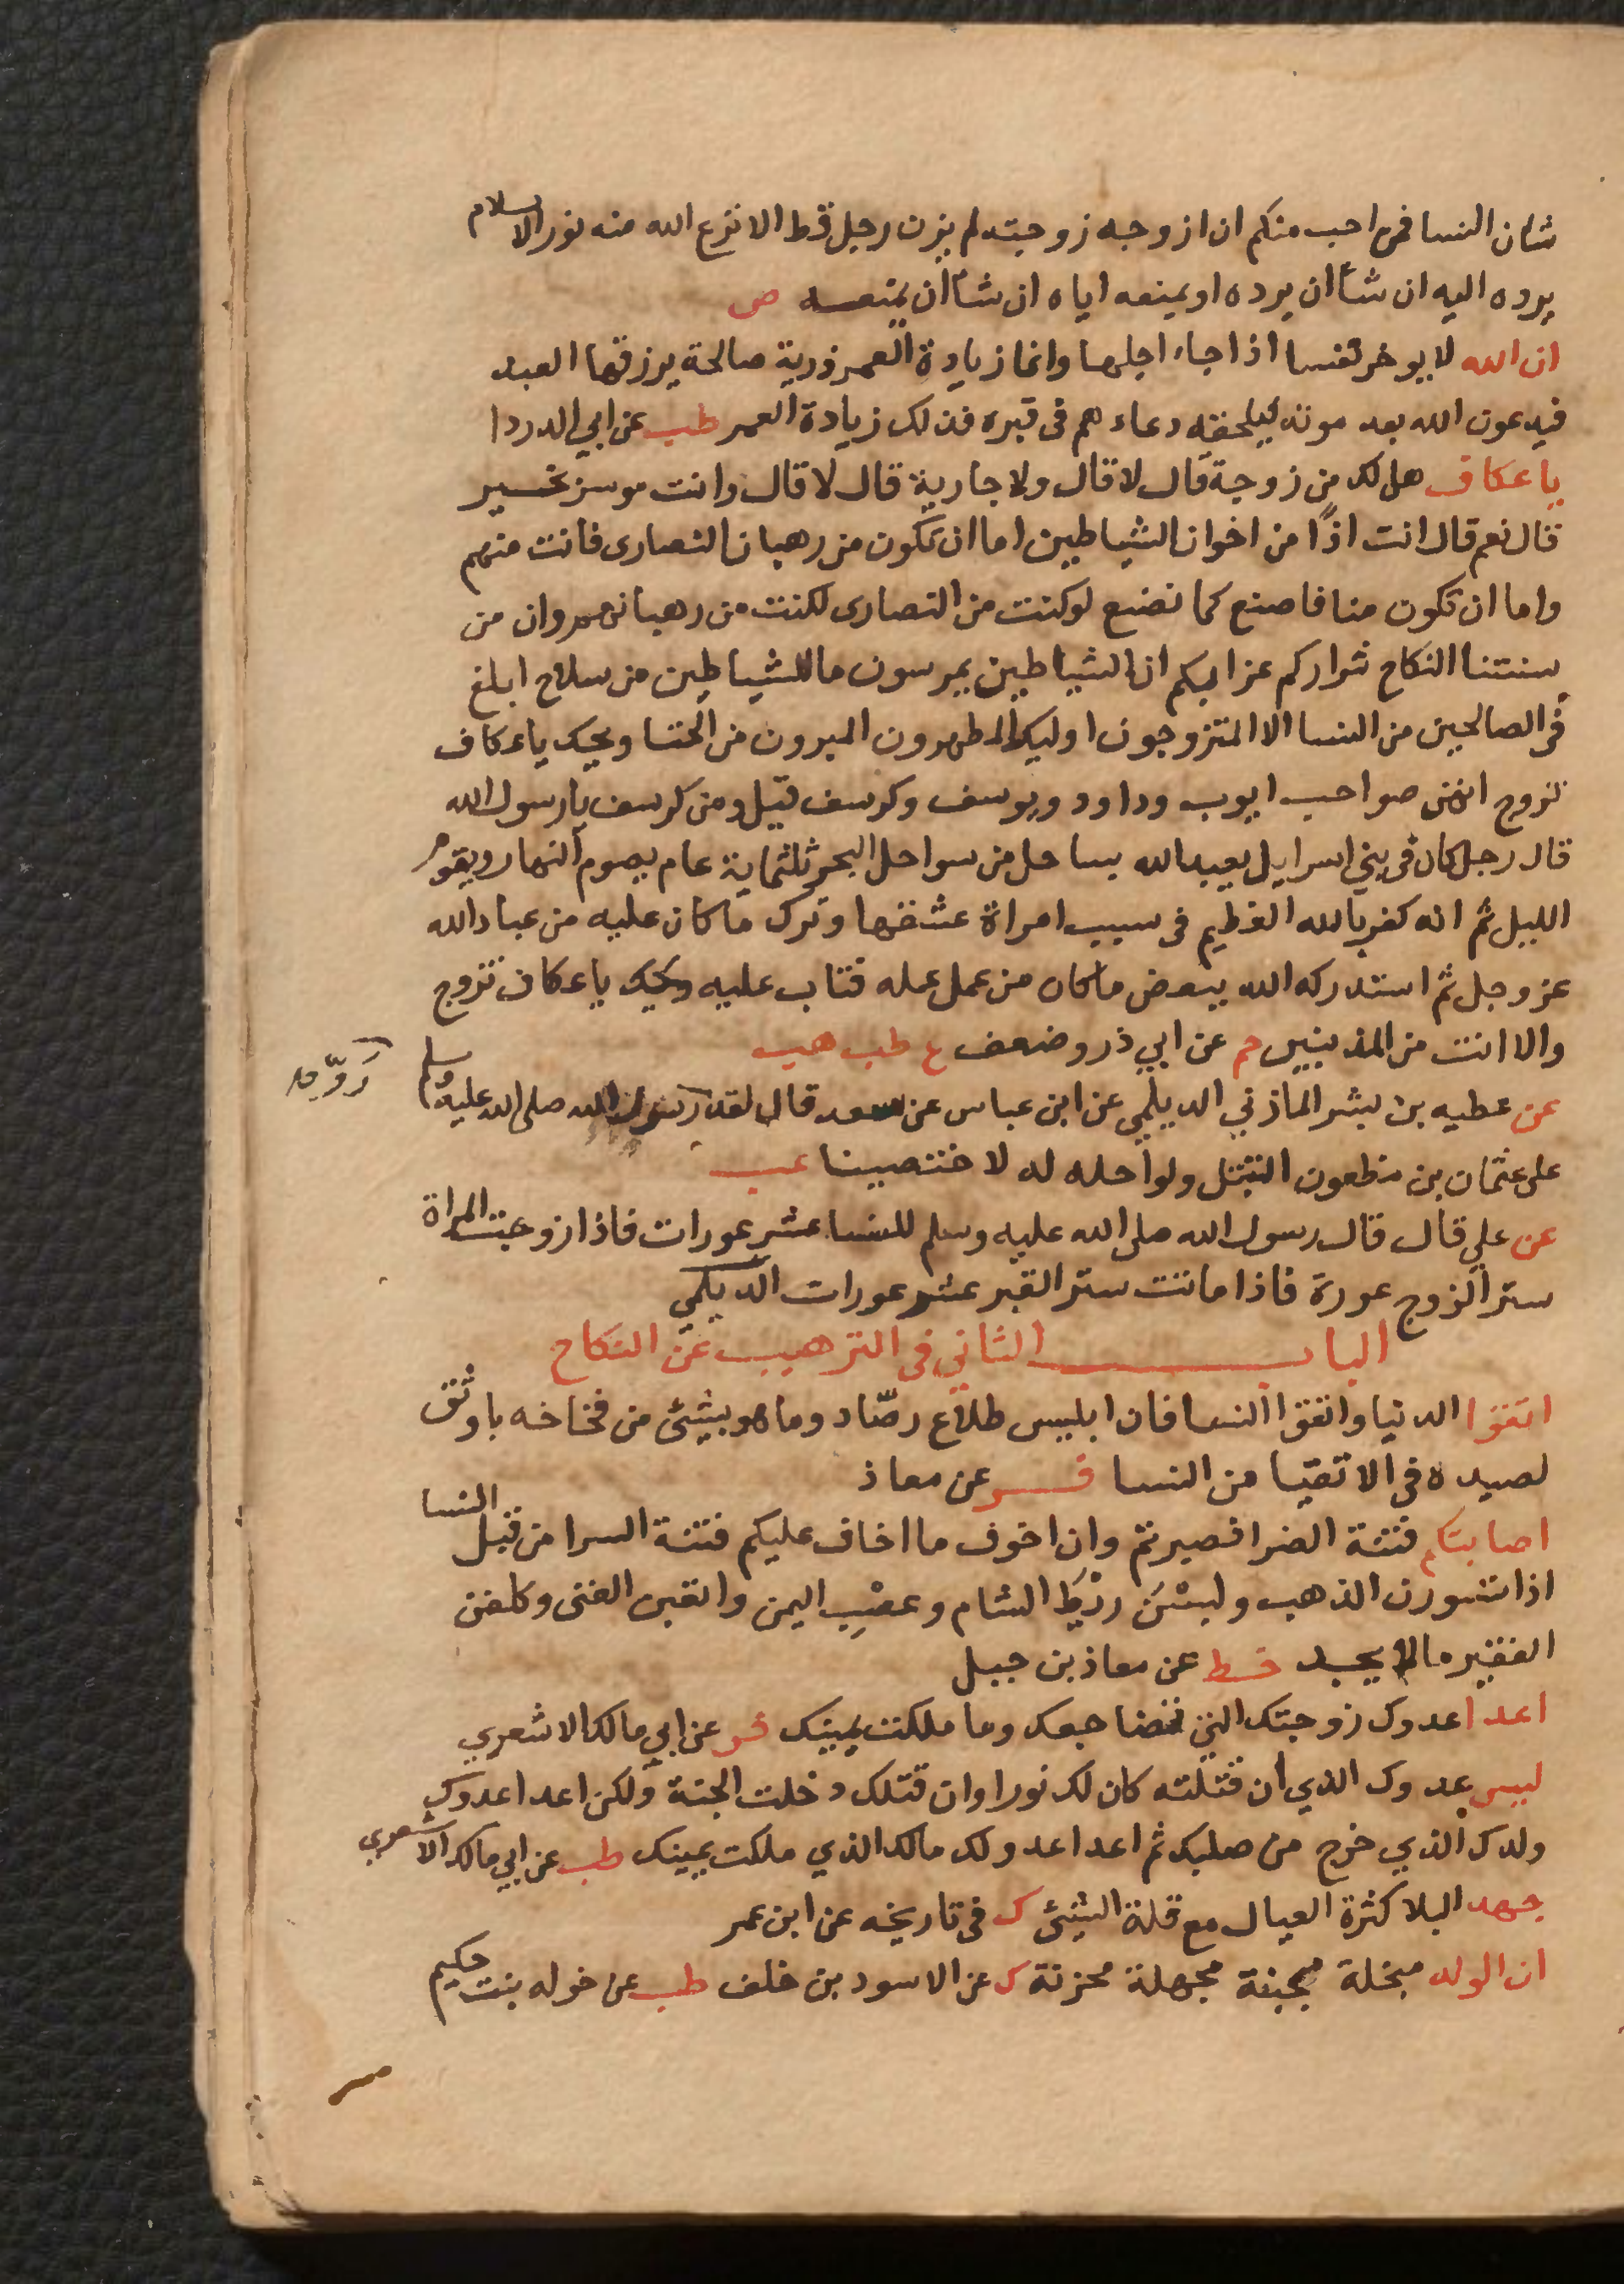 شان النسا فمن احب منكم ان ازوجه زوجته لم يزن رجل قط الا نزع الله منه نور الاسلام
يرده اليه ان شاأن يرده او يمنعه اياه ان شاأن يمنعـه ص
ان الله لا يوخر نفسا اذا جاء اجلها وانما زيادة العمر ذرية صالحة يرزقها العبد
فيدعون الله بعد موته فيلحقه دعاءهم فى قبره فذلك زيادة العمر طب عن ابي الدردا
يا عكاف هل لك من زوجة قال لا قال ولا جارية قال لا قال وانت موسر بخسير
قال نعم قال انت اذًا من اخوان الشياطين اما ان تكون من رهبان النصارى فانت منهم
واما ان تكون منا فاصنع كما نصنع لو كنت من النصارى لكنت من رهبانهم وان من
سنتنا النكاح شراركم عزابكم ان الشياطين يمرسون ما للشياطين من سلاح ابلغ
فى الصالحين من النسا الا المتزوجون اوليك المطهرون المبرون من الخنا ويحك يا عكاف
تزوج انهن صواحب ايوب وداود ويوسف وكرسف قيل ومن كرسف يا رسول الله
قال رجل كان فى بني اسرايل يعبد الله بساحل من سواحل البحر ثلثماية عام يصوم النهار ويقوم
الليل ثم انه كفر بالله العظيم فى سبب امراة عشقها وترك ما كان عليه من عباد الله
عز وجل ثم استدركه الله ببعض ما كان من عمل عمله فتاب عليه ويحك يا عكاف تزوج
والا انت من المذبذبين حم عن ابي ذر وضعف ع طب هب
عن عطيه بن بشر الماذني الديلمي عن ابن عباس عن سعد قال لقد رسول الله صلى الله عليه وسلم
ردّ
على عثمان بن مظعون التبتل ولو احله له لاختصينا عب
عن علي قال قال رسول الله صلى الله عليه وسلم للنسا عشر عورات فاذا زوجت المراة
ستر الزوج عورة فاذا ماتت ستر القبر عشر عورات الديلمي
البـاب الثاني فى الترهيب عن النكاح
اتقوا الدنيا واتقوا النسا فان ابليس طلّاع رصّاد وما هو بشئ من فخاخه باوثق
لصيده فى الاتقيا من النسا فـر عن معاذ
اصابتكم فتنة الضرا فصبرتم وان اخوف ما اخاف عليكم فتنة السرا من قبل النسا
اذا تسورن الذهب ولبسْنَ ريْط الشام وعصْب اليمن واتعبن الغنى وكلفن
الفقير ما لا يجد خط عن معاذ بن جبل
اعدا عدوك زوجتك التي تضاجعك وما ملكت يمينك فر عن ابي مالك الاشعري
ليس عدوك الذي ان قتلته كان لك نورا وان قتلك دخلت الجنة ولكن اعدا عدوك
ولدك الذي خرج من صلبك ثم اعدا عدو لك مالك الذي ملكت يمينك طب عن ابي مالك الاشعري
جهد البلا كثرة العيال مع قلة الشئ ك فى تاريخه عن ابن عمر
ان الولد مبخلة مجبنة مجهلة محزنة ك عن الاسود بن خلف طب عن خوله بنت حكيم